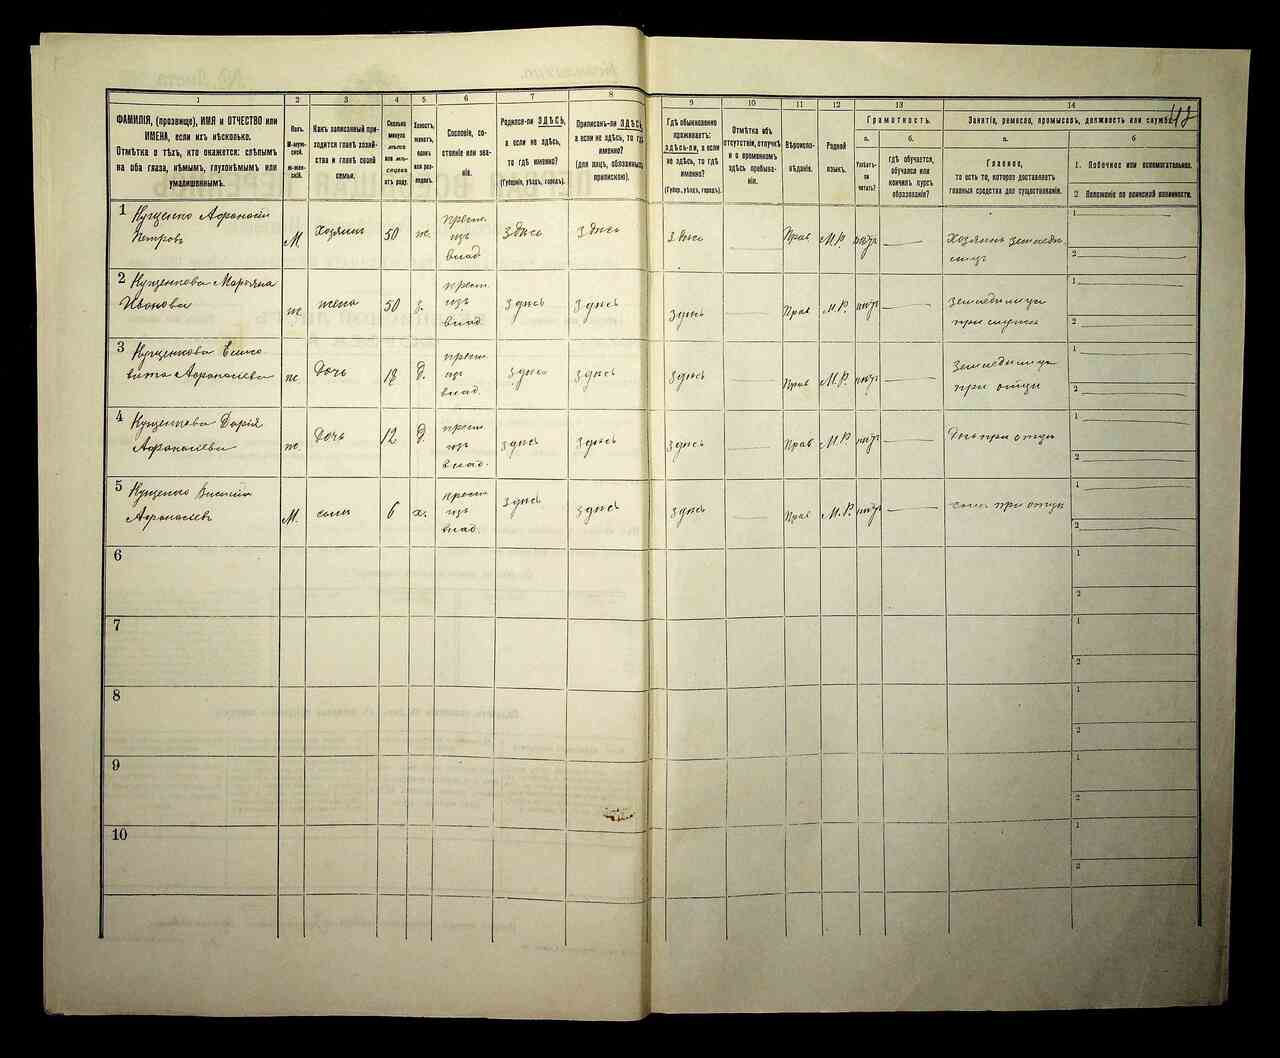 1
2
3
4
5
6
7
8
9
10
11
12
13
14
ФАМИЛІЯ, (прозвище), ИМЯ и ОТЧЕСТВО или
ИМЕНА, если ихъ нѣсколько.
Отмѣтка о тѣхъ, кто окажется: слѣпымъ
на оба глаза, нѣмымъ, глухонѣмымъ или
умалишеннымъ.
Полъ.
М-мужской.
ж-женскій.
Какъ записанный при-
ходится главѣ хозяй-
ства и главѣ своей
семьи.
Сколько
минуло
лѣтъ
или мѣ-
сяцевъ
отъ роду.
Холостъ,
женатъ,
вдовъ
или раз-
веденъ.
Сословіе, со-
стояніе или зва-
ніе.
Родился-ли ЗДѢСЬ,
а если не здѣсь,
то гдѣ именно?
(Губернія, уѣздъ, городъ).
Приписанъ-ли ЗДѢСЬ,
а если не здѣсь, то гдѣ
именно?
(для лицъ, обязанныхъ
припискою).
Гдѣ обыкновенно
проживаетъ:
здѣсь-ли, а если
не здѣсь, то гдѣ
именно?
(Губер., уѣздъ, городъ).
Отмѣтка объ
отсутствіи, отлучкѣ
и о временномъ
здѣсь пребыва-
ніи.
Вѣроиспо-
вѣданіе.
Родной
языкъ.
Грамотность.
а.
Умѣетъ-
ли
читать?
б.
гдѣ обучается,
обучался или
кончилъ курсъ
образованія?
Занятіе, ремесло, промыселъ, должность или служба.
48
а.
Главное,
то есть то, которое доставляетъ
главныя средства для существованія.
б
1. Побочное или вспомогательное.
2 Положеніе по воинской повинности.
1 Кущенко Афанасій
Петровъ
М Хозяинъ 50 ж. крест.
изъ
влад.
здѣсь здѣсь здѣсь — Прав М.Р. нѣтъ — Хозяинъ
1
2
2 Кущенкова Марьяна
Иванова
ж. жена 50 з. крест.
изъ
влад.
здѣсь здѣсь здѣсь — Прав М.Р. нѣтъ —
1
2
3 Кущенкова Елиса
вета Афанасіева
ж. Дочь 18 д. крест.
изъ
влад.
здѣсь здѣсь здѣсь — Прав М.Р. нѣтъ —
при отцѣ
1
2
4 Кущенкова Дарія
Афанасіева
ж. Дочь 12 д. крест.
изъ
влад.
здѣсь здѣсь здѣсь — Прав М.Р нѣтъ — при отцѣ
1
2
5 Кущенко Василій
Афанасіевъ
М. сынъ 6 х. крест.
изъ
влад.
здѣсь здѣсь здѣсь — Прав М.Р. нѣтъ — сынъ при отцѣ
1
2
6
1
2
7
1
2
8
1
2
9
1
2
10
1
2